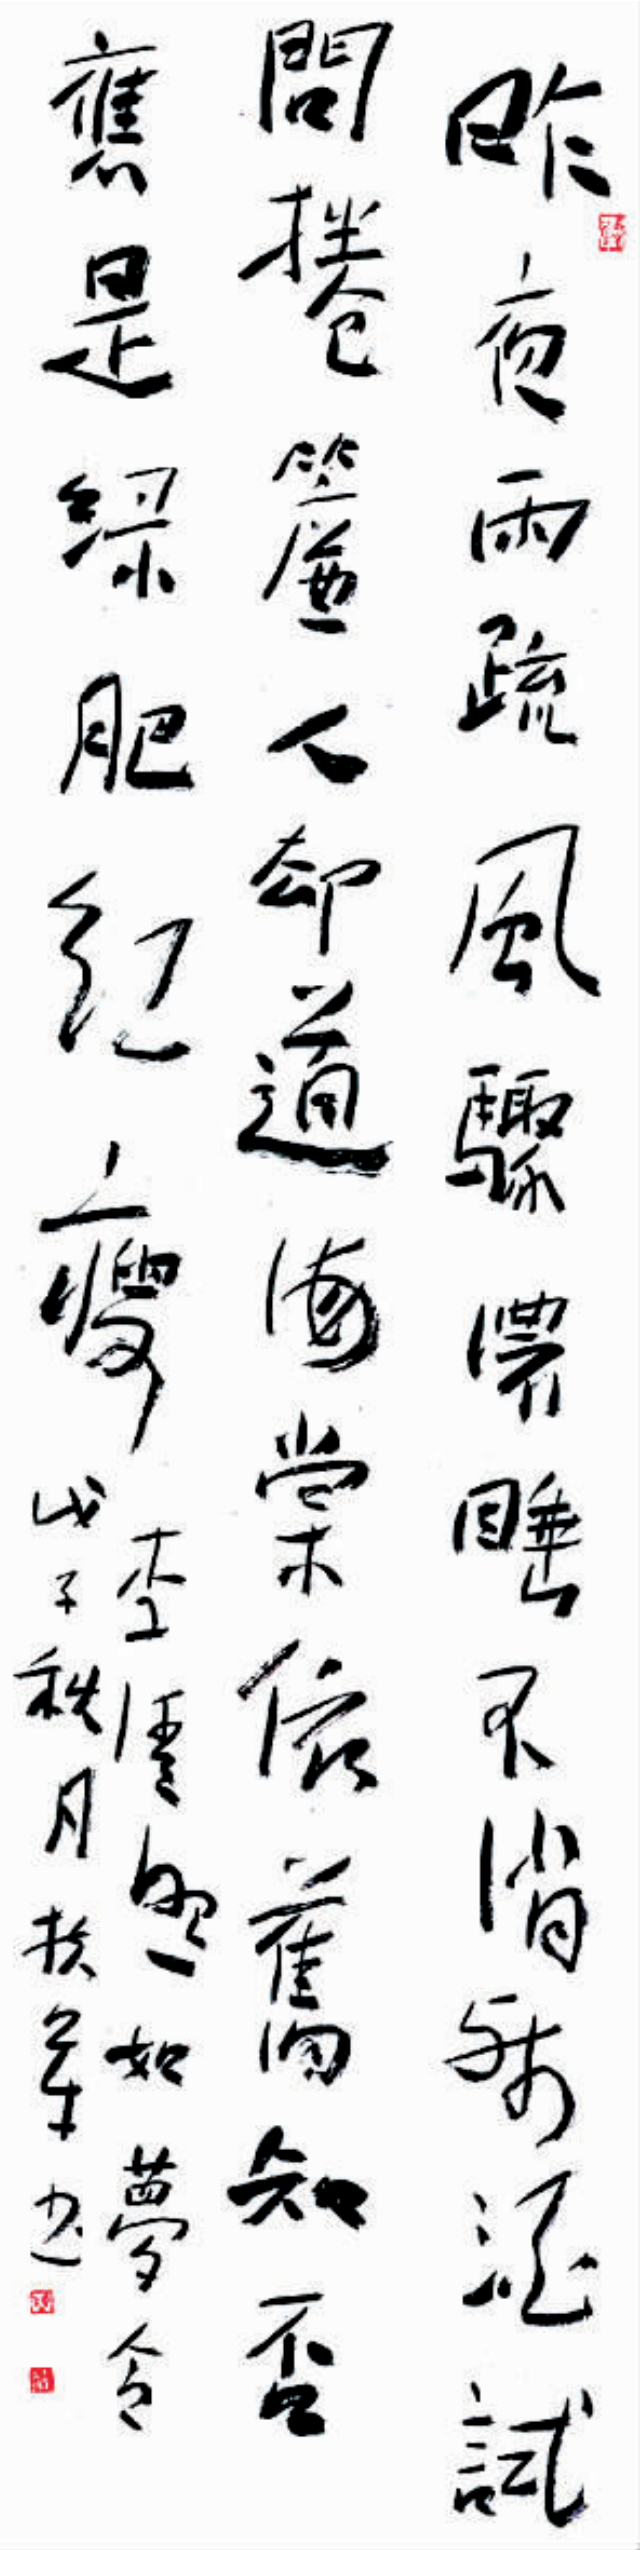 昨夜雨疏風驟濃睡不消殘酒試
問捲簾人却道海棠依舊知否
應是綠肥紅瘦
李清照如夢令
戊子秋月